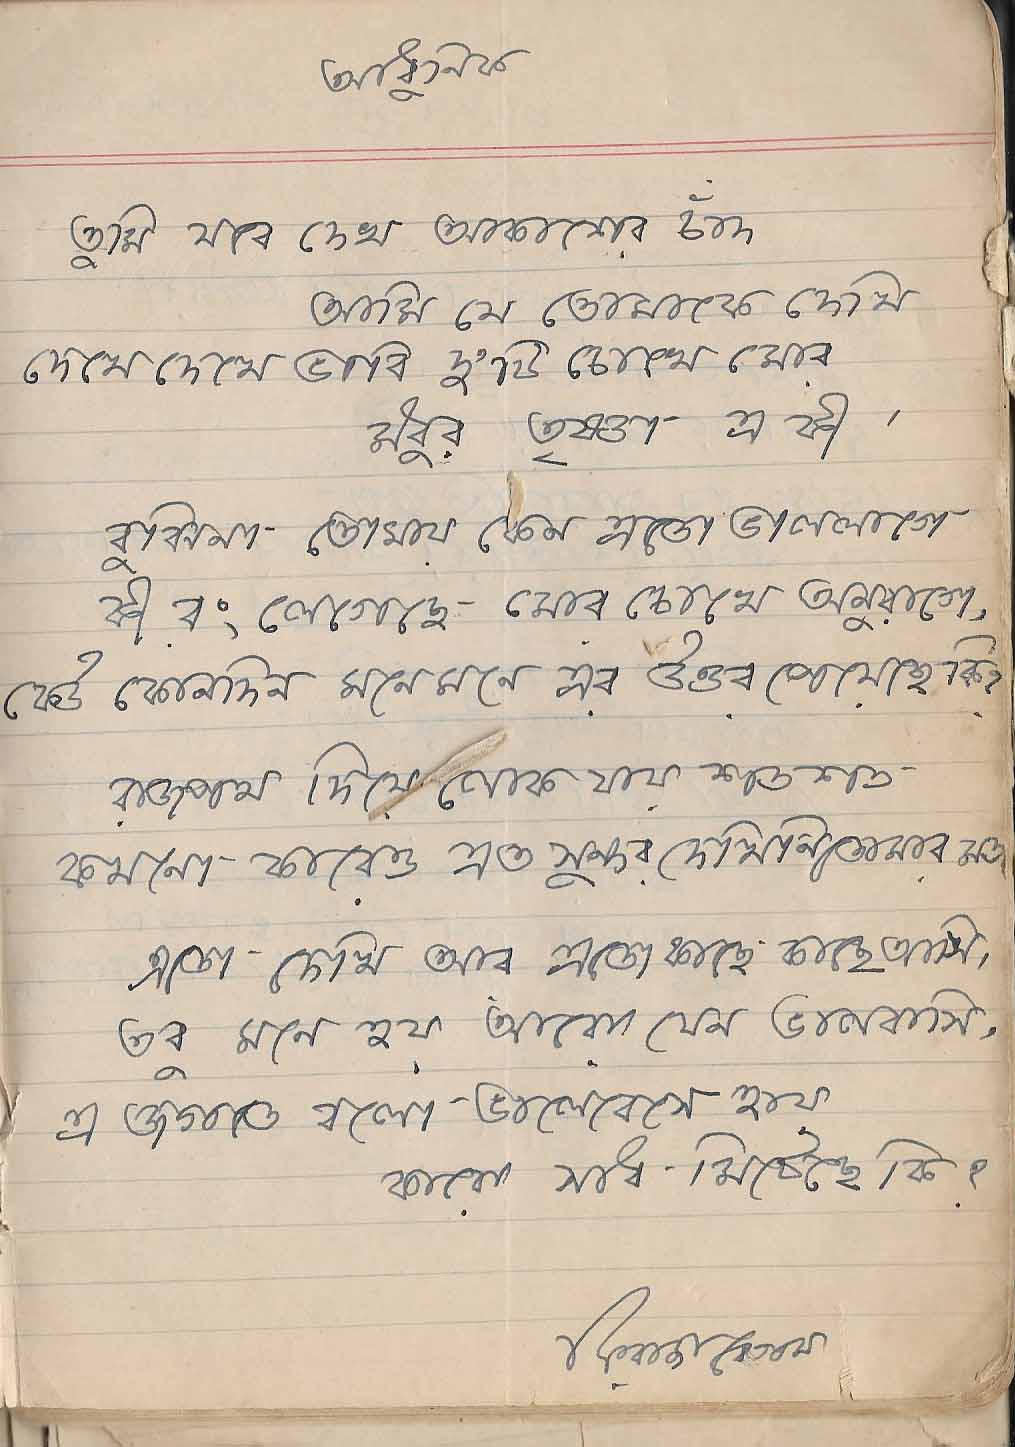 আধুনিক
তুমি যবে দেখ আকাশের চাঁদ
আমি যে তোমাকে দেখি
দেখে দেখে ভাবি দু'টি চোখে মোর
মধুর তৃষ্ণা এ কী ।
বুঝিনা তোমায় কেন এতো ভাললাগে
কী রং লেগেছে মোর চোখে অনুরাগে,
কেউ কোনদিন মনে মনে এর উত্তর পেয়েছে কি?
রাজপথ দিয়ে লোক যায় শত শত
কখনো কারেও এত সুন্দর দেখিনি তোমার মত
এতো দেখি আর এতো কাছে কাছে আসি,
তবু মনে হয় আরো যেন ভালবাসি,
এ জগতে বলো ভালবেসে হায়
কারো সাধ মিটেছে কি ?
ফিরোজা বেগম